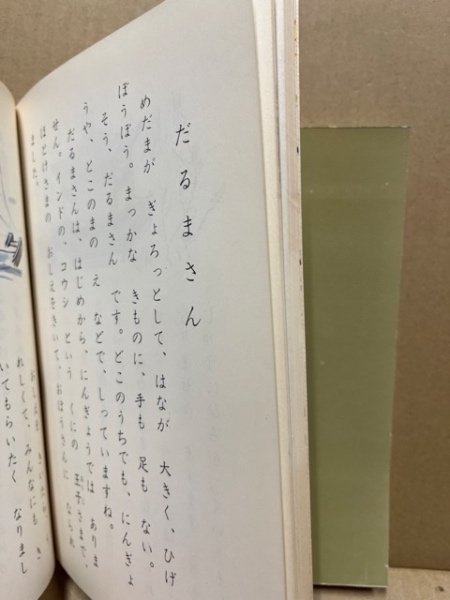 だるまさん
めだまが ぎょろっとして、はなが 大きく、ひげ
ぼうぼう。まっかな きものに、手も 足も ない。
そう、だるまさん です。どこのうちでも、にんぎょ
うや、とこのまの え などで、しっていますね。
だるまさんは、はじめから、にんぎょうでは ありま
せん。インドの、コウシ という くにの 王子さまで、
ほとけさまの おしえをきいて、おぼうさんに なられ
ました。
れしくて、みんなにも
いてもらいたく なりまし